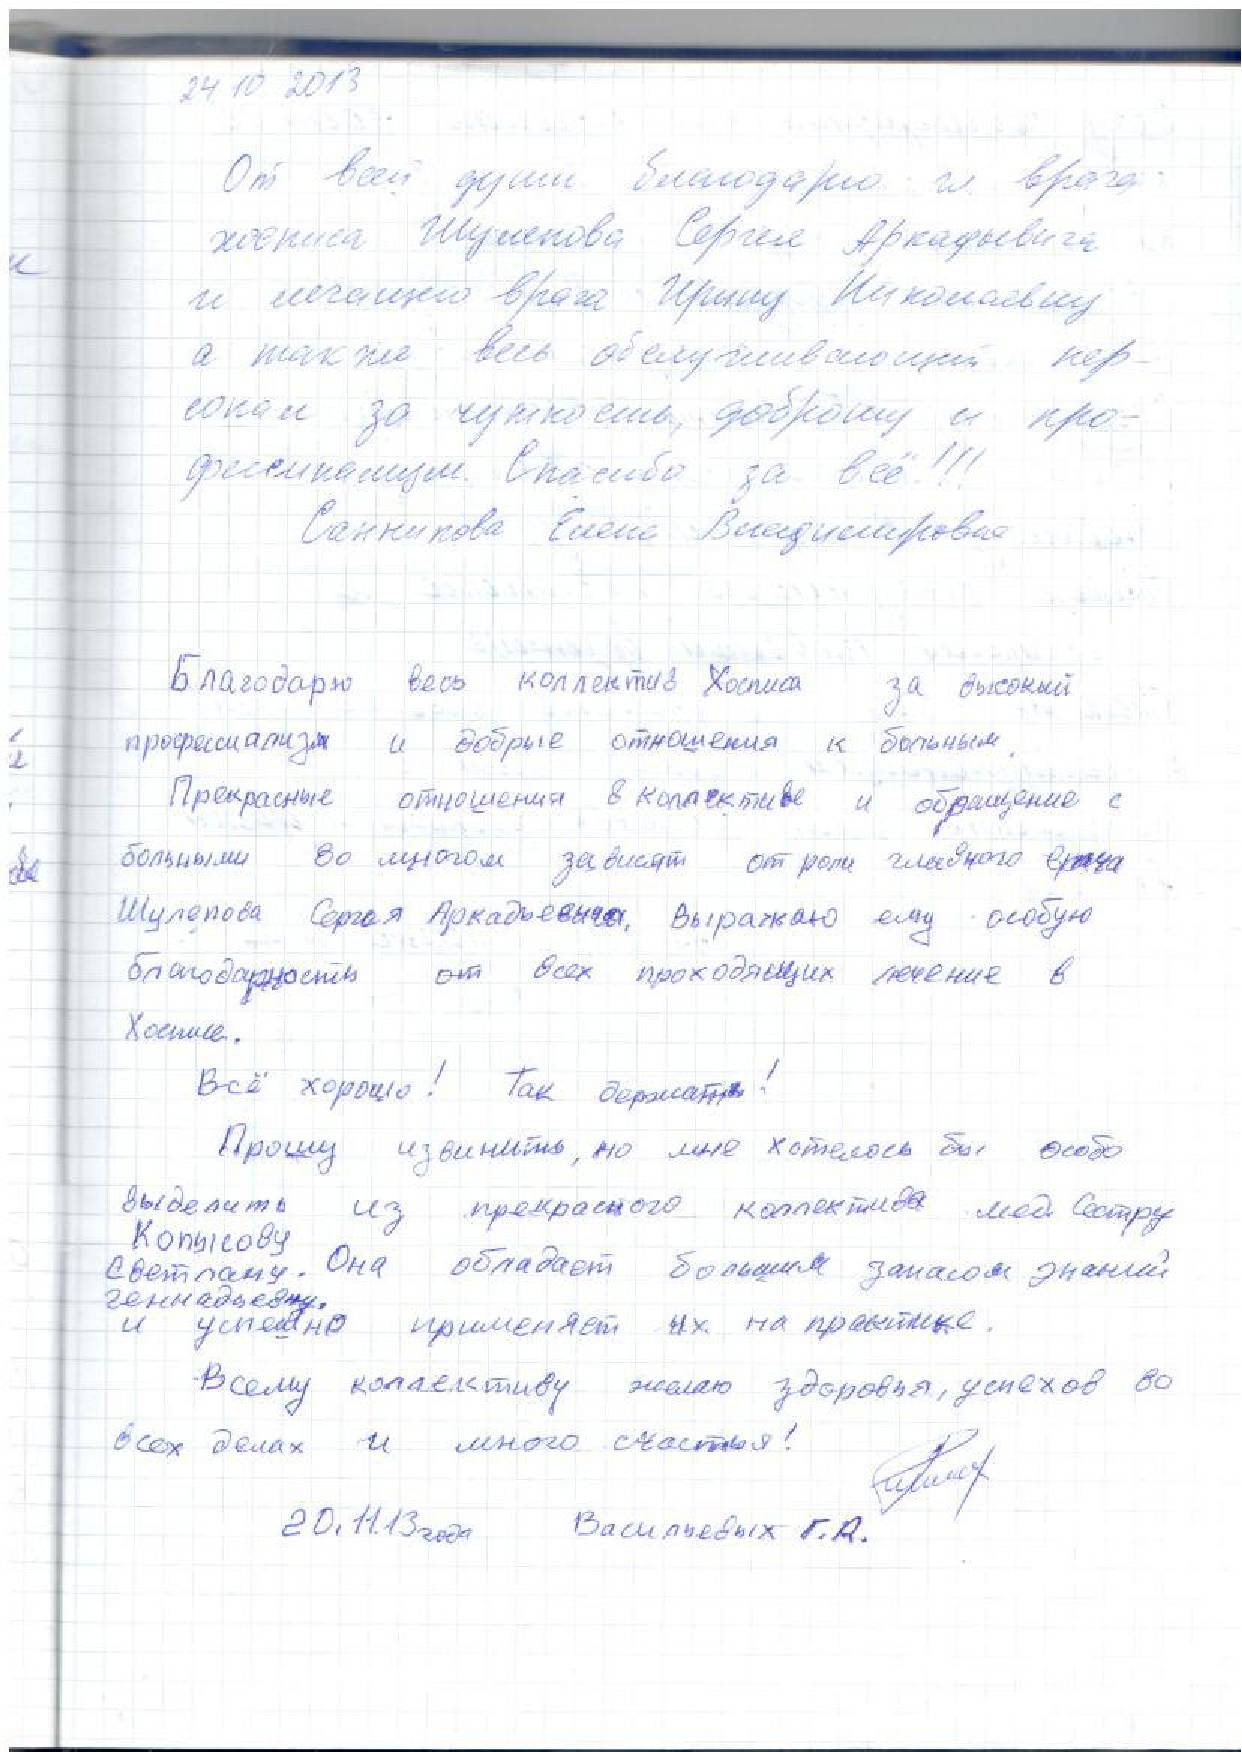 24 10 2013
От всей души благодарю гл врача
хосписа Шулепова Сергея Аркадьевича
и лечащего врача Ирину Николаевну
а также весь обслуживающий пер-
сонал за чуткость, доброту и про-
фессионализм. Спасибо за всё!!!
Санникова Елена Владимировна
Благодарю весь коллектив Хосписа за высокий
профессиализм и добрые отношения к больным.
Прекрасные отношения в коллективе и обращение с
больными во многом зависят от роли главного врача
Шулепова Сергея Аркадьевича. Выражаю ему особую
благодарность от всех проходящих лечение в
Хосписе.
Всё хорошо! Так держать!
Прошу извинить, но мне хотелось бы особо
выделить из прекрасного коллектива мед. Сестру
Копысову
Светлану. Она обладает большим запасом знаний
Геннадьевну.
и успешно применяет их на практике.
Всему коллективу желаю здоровья, успехов во
всех делах и много счастья!
20.11.13 года Васильевых Г.А.